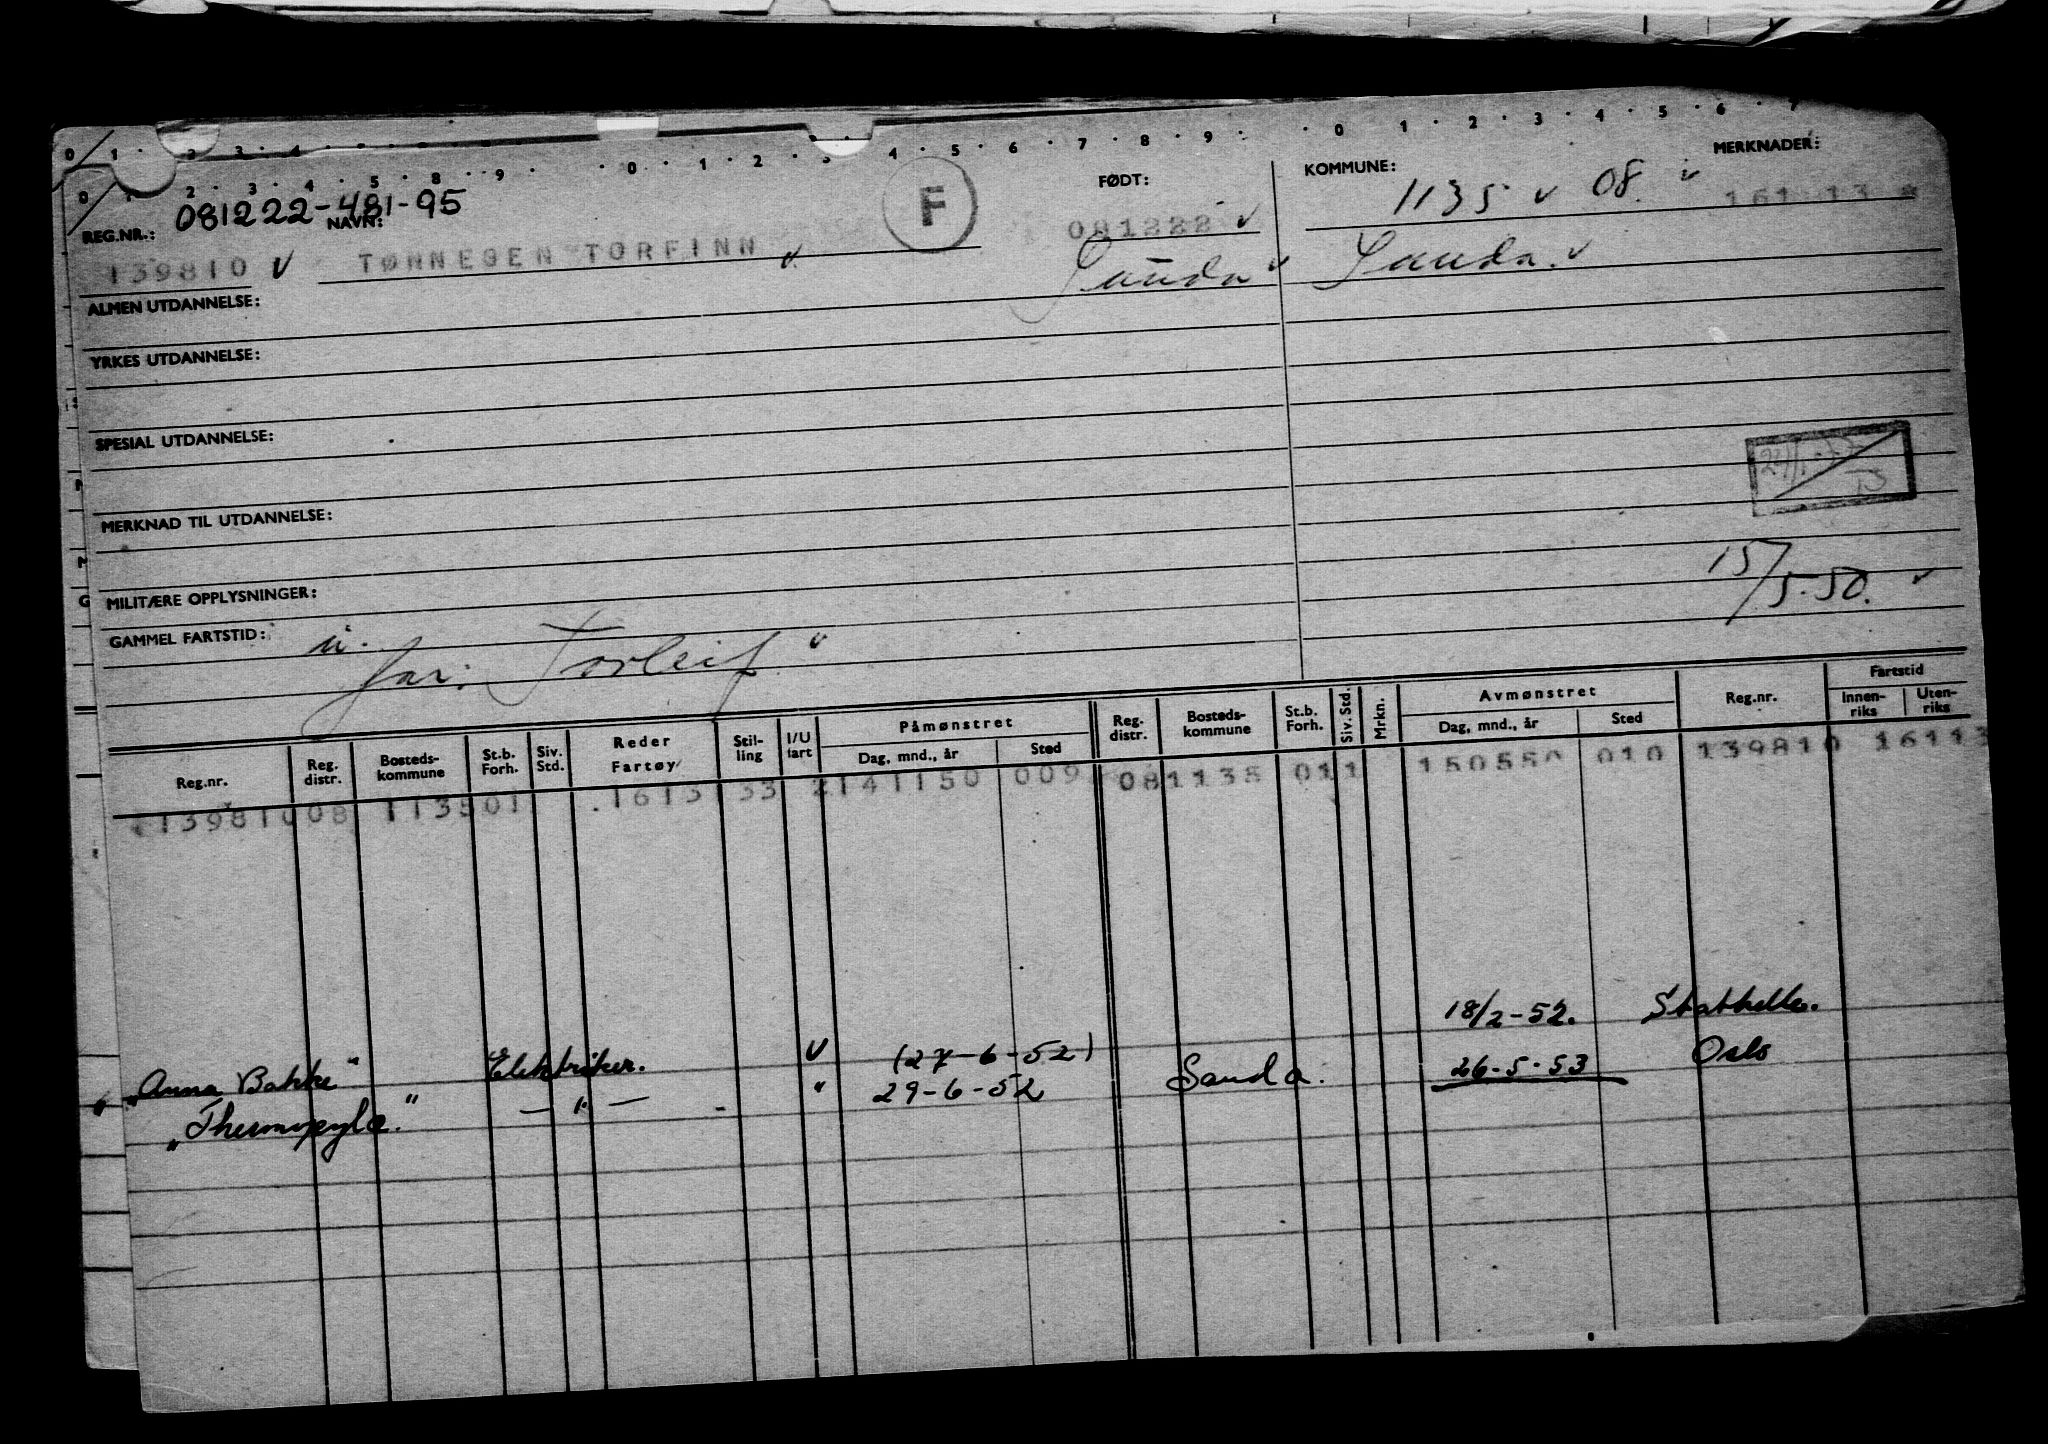 0 1 2 3 4 5 8 9 0 1 2 3 4 5 6 7 8 9 0 1 2 3 4 5 6 7
REG.NR.: 081222-481-95 NAVN: F FØDT: KOMMUNE: 1135 08. MERKNADER:
139810 TØNNESEN TORFINN 081222 161 13
Sauda Sauda.
ALMEN UTDANNELSE:
YRKES UTDANNELSE:
SPESIAL UTDANNELSE:
MERKNAD TIL UTDANNELSE:
MILITÆRE OPPLYSNINGER:
15/5-50.
GAMMEL FARTSTID: u.
far: Torleif
Reg.nr. Reg. distr. Bosteds-kommune St.b. Forh. Siv. Std. Reder Fartøy Stil-ling I/U fart Påmønstret Dag, mnd., år Sted Reg. distr. Bosteds-kommune St.b. Forh. Siv. Std. Mrkn. Avmønstret Dag, mnd., år Sted Reg.nr. Fartstid Innen-riks Uten-riks
139810 08 1135 01 1613 33 2141150 009 08 1135 011 150550 010 139810 16113
18/2-52. Stathelle.
„Anna Bakke" Elektriker. U (27-6-52)
„Thermopylæ." — " — " 29-6-52 Sauda. 26-5-53 Oslo